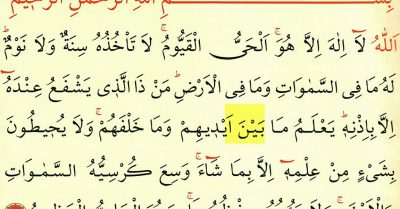 بِسْمِ اللهِ الرَّحْمٰنِ الرَّحِيمِ
اَللهُ لَآ اِلٰهَ اِلَّا هُوَۚ اَلْحَىُّ الْقَيُّومُۚ لَا تَأْخُذُهُ سِنَةٌ وَلَا نَوْمٌۜ
لَهُ مَا فِى السَّمٰوَاتِ وَمَا فِى الْاَرْضِۜ مَنْ ذَا الَّذٖى يَشْفَعُ عِنْدَهُٓ
اِلَّا بِاِذْنِهٖۜ يَعْلَمُ مَا بَيْنَ اَيْدٖيهِمْ وَمَا خَلْفَهُمْۚ وَلَا يُحٖيطُونَ
بِشَیْءٍ مِنْ عِلْمِهٖٓ اِلَّا بِمَا شَٓاءَۚ وَسِعَ كُرْسِيُّهُ السَّمٰوَاتِ